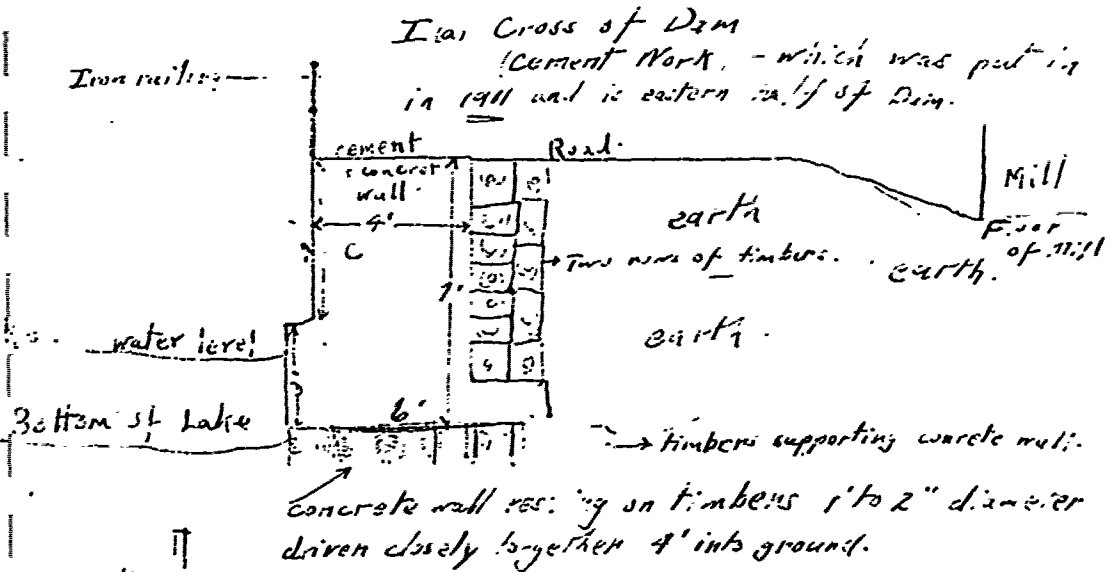 Cross of Dam
Cement Work, - which was put in
in 1911 and is eastern half of Dam.
Iron railing
cement
concret
wall
Road.
4'
C
7'
earth
Two rows of timbers.
earth.
earth
Mill
Floor
of Mill
water level
Bottom of Lake
6'
timbers supporting concrete wall.
concrete wall resting on timbers 1' to 2" diameter
driven closely together 4' into ground.